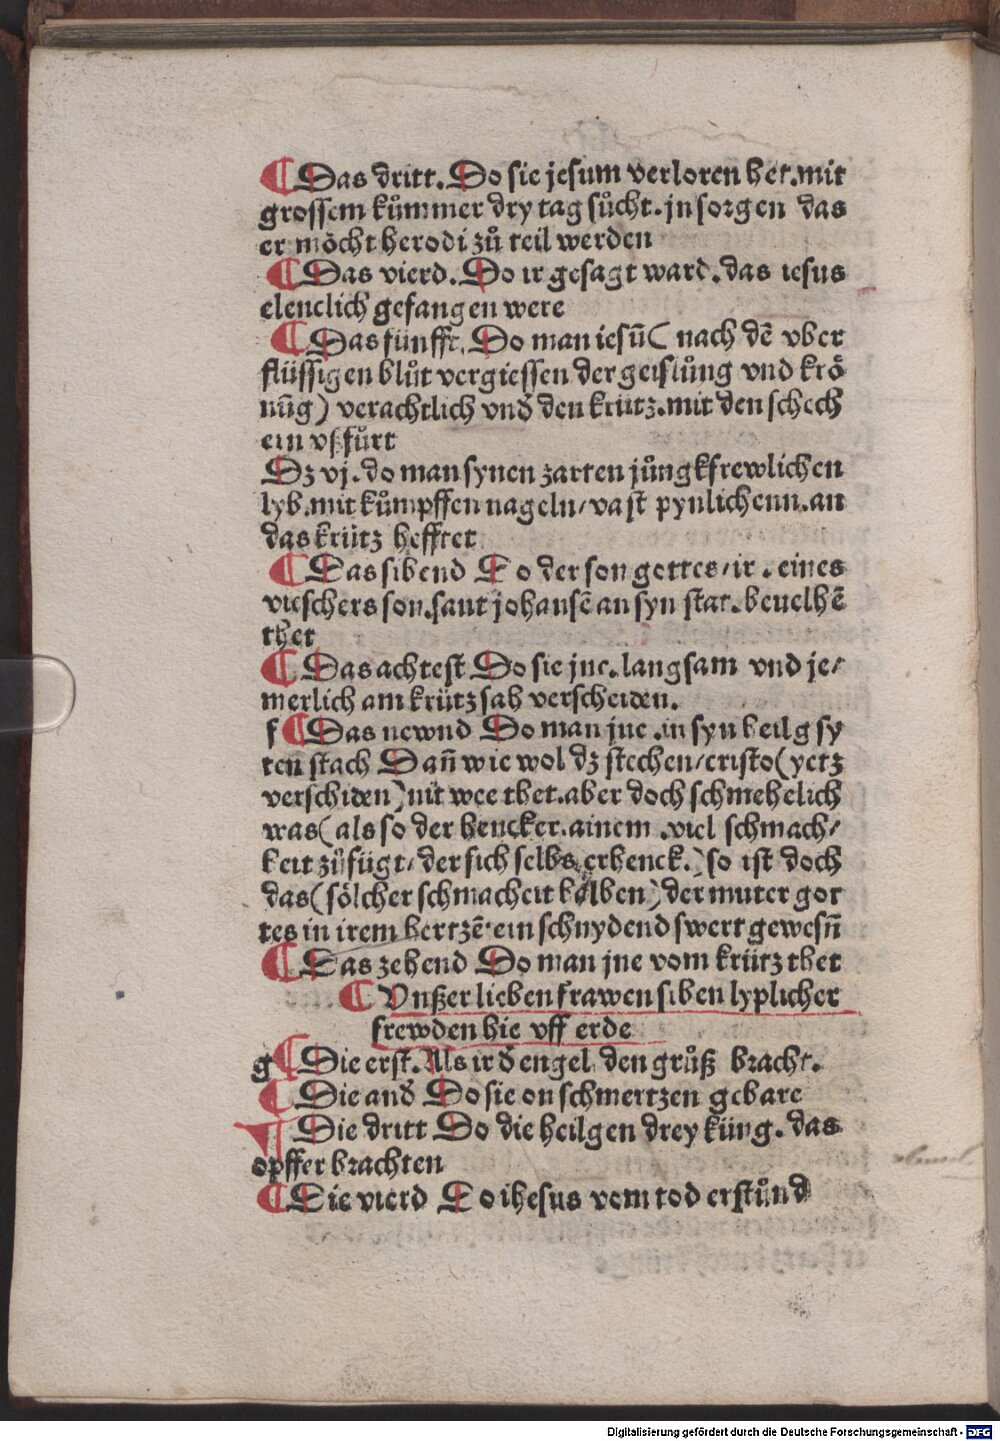 ¶ Das dritt. Do sie jesum verloren het. mit
grossem kům̄er dry tag sůcht. jn sorgen das
er möcht herodi zů teil werden
¶ Das vierd. Do ir gesagt ward. das iesus
elendlich gefangen were
¶ Das fünfft. Do man iesūm( nach dē vber
flüssigen blůt vergiessen der geislůng vnd krö
nūg) verachtlich vnd̄ den krütz. mit den schech
ern vßfůrt
Dz vj. do man synen zarten jůngkfrewlichen
lyb. mit kůmpffen nageln/ vast pynlichenn. an
das krütz hefftet
¶ Das sibend Do der son gottes/ ir. eines
vischers son. sant johansē an syn stat. beuelhē
thet
¶ Das achtest Do sie jne. langsam vnd je/
merlich am krütz sah verscheiden.
f ¶ Das newnd Do man jne. in syn heilg sy
ten stach Dan̄ wie wol dz stechen/ cristo( yetz
verschiden) nit wee thet. aber doch schmehelich
was( als so der hencker. ainem. viel schmach/
keit zůfügt/ der sich selbs erhenck.) so ist doch
das( sölcher schmacheit halben) der muter got
tes in irem hertzē. ein schnydend swert gewesn̄
¶ Das zehend Do man jne vom krütz thet
¶ Vnßer lieben frawen siben lyplicher
frewden hie vff erde
g ¶ Die erst. Als ir d̄ engel den grůß bracht.
¶ Die and̄ Do sie on schmertzen gebare
¶ Die dritt Do die heilgen drey küng. das
opffer brachten
¶ Die vierd Do ihesus vom tod erstůnd
Digitalisierung gefördert durch die Deutsche Forschungsgemeinschaft - DFG